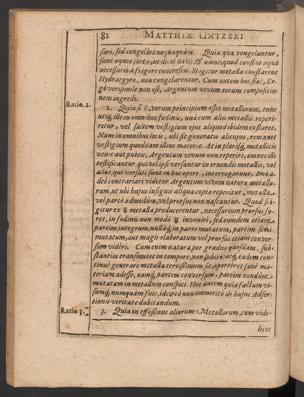 82 MATTHIÆ UNTZERI
sari, sed congelari nequaquam. Quia quæ congelantur,
necessario à frigore concrescit. Si igitur metalla constarent
Hydrargyro, non congelarentur. Cum autem hoc fiat, Er-
gò verisimile non est, Argentum vivum eorum compositio-
nem ingredi.
Ratio. 2. 2. Quia si ☿, verum principium esset metallorum,
utiq; ille in omnibus fodinis, unà cum aliis metallis reperi-
retur, vel saltem vestigium ejus aliquod ibidem exstaret.
Nam in omnibus locis, ubi fit generatio alicujus, rem aut
vestigium quoddam illius materiæ. At in plerisq; metallicis
venis aut puteis, Argentum vivum non reperiri, autores illi
testificantur, qui vel ipsi versantur in eruendis metallis, vel
alios, qui versati sunt in hoc opere, interrogarunt. Imò a-
deò contrariari videtur Argentum vivum naturæ metallo-
rum, ut ubi hujus insignis aliqua copia reperitur, metalla
vel parcè admodum, vel prorsus non nascantur. Quod si i-
gitur ex ☿ metalla producerentur, necessarium prorsus fo-
ret, in fodinis non modò ☿ inveniri, sed eundem etiam,
partim integrum, nullaq; in parte mutatum, partim semi-
mutatum, aut magis elaboratum vel prorsus etiam conver-
sum videri. Cum enim natura per gradus quosdam, sub-
stantias transmutet in tempore, non subitò: atq; eadem con-
tinuè generare metalla certissimum sit, oporteret sanè ma-
teriam adesse, eamq; partim conversam, partim nondum
mutatam in metallum conspici. Hoc autem quia factum vi-
sumq; nunquam fuit, idcircò non immeritò de hujus Adser-
tionis veritate dubitandum.
Ratio 3. 3. Quia in effossione aliorum Metallorum, cum vide-
licet